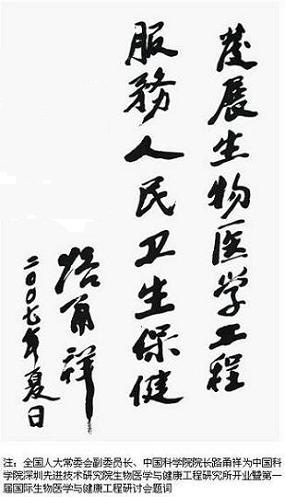 发展生物医学工程
服務人民卫生保健
路甬祥
二〇〇七年夏日
注：全国人大常委会副委员长、中国科学院院长路甬祥为中国科
学院深圳先进技术研究院生物医学与健康工程研究所开业暨第一
届国际生物医学与健康工程研讨会题词